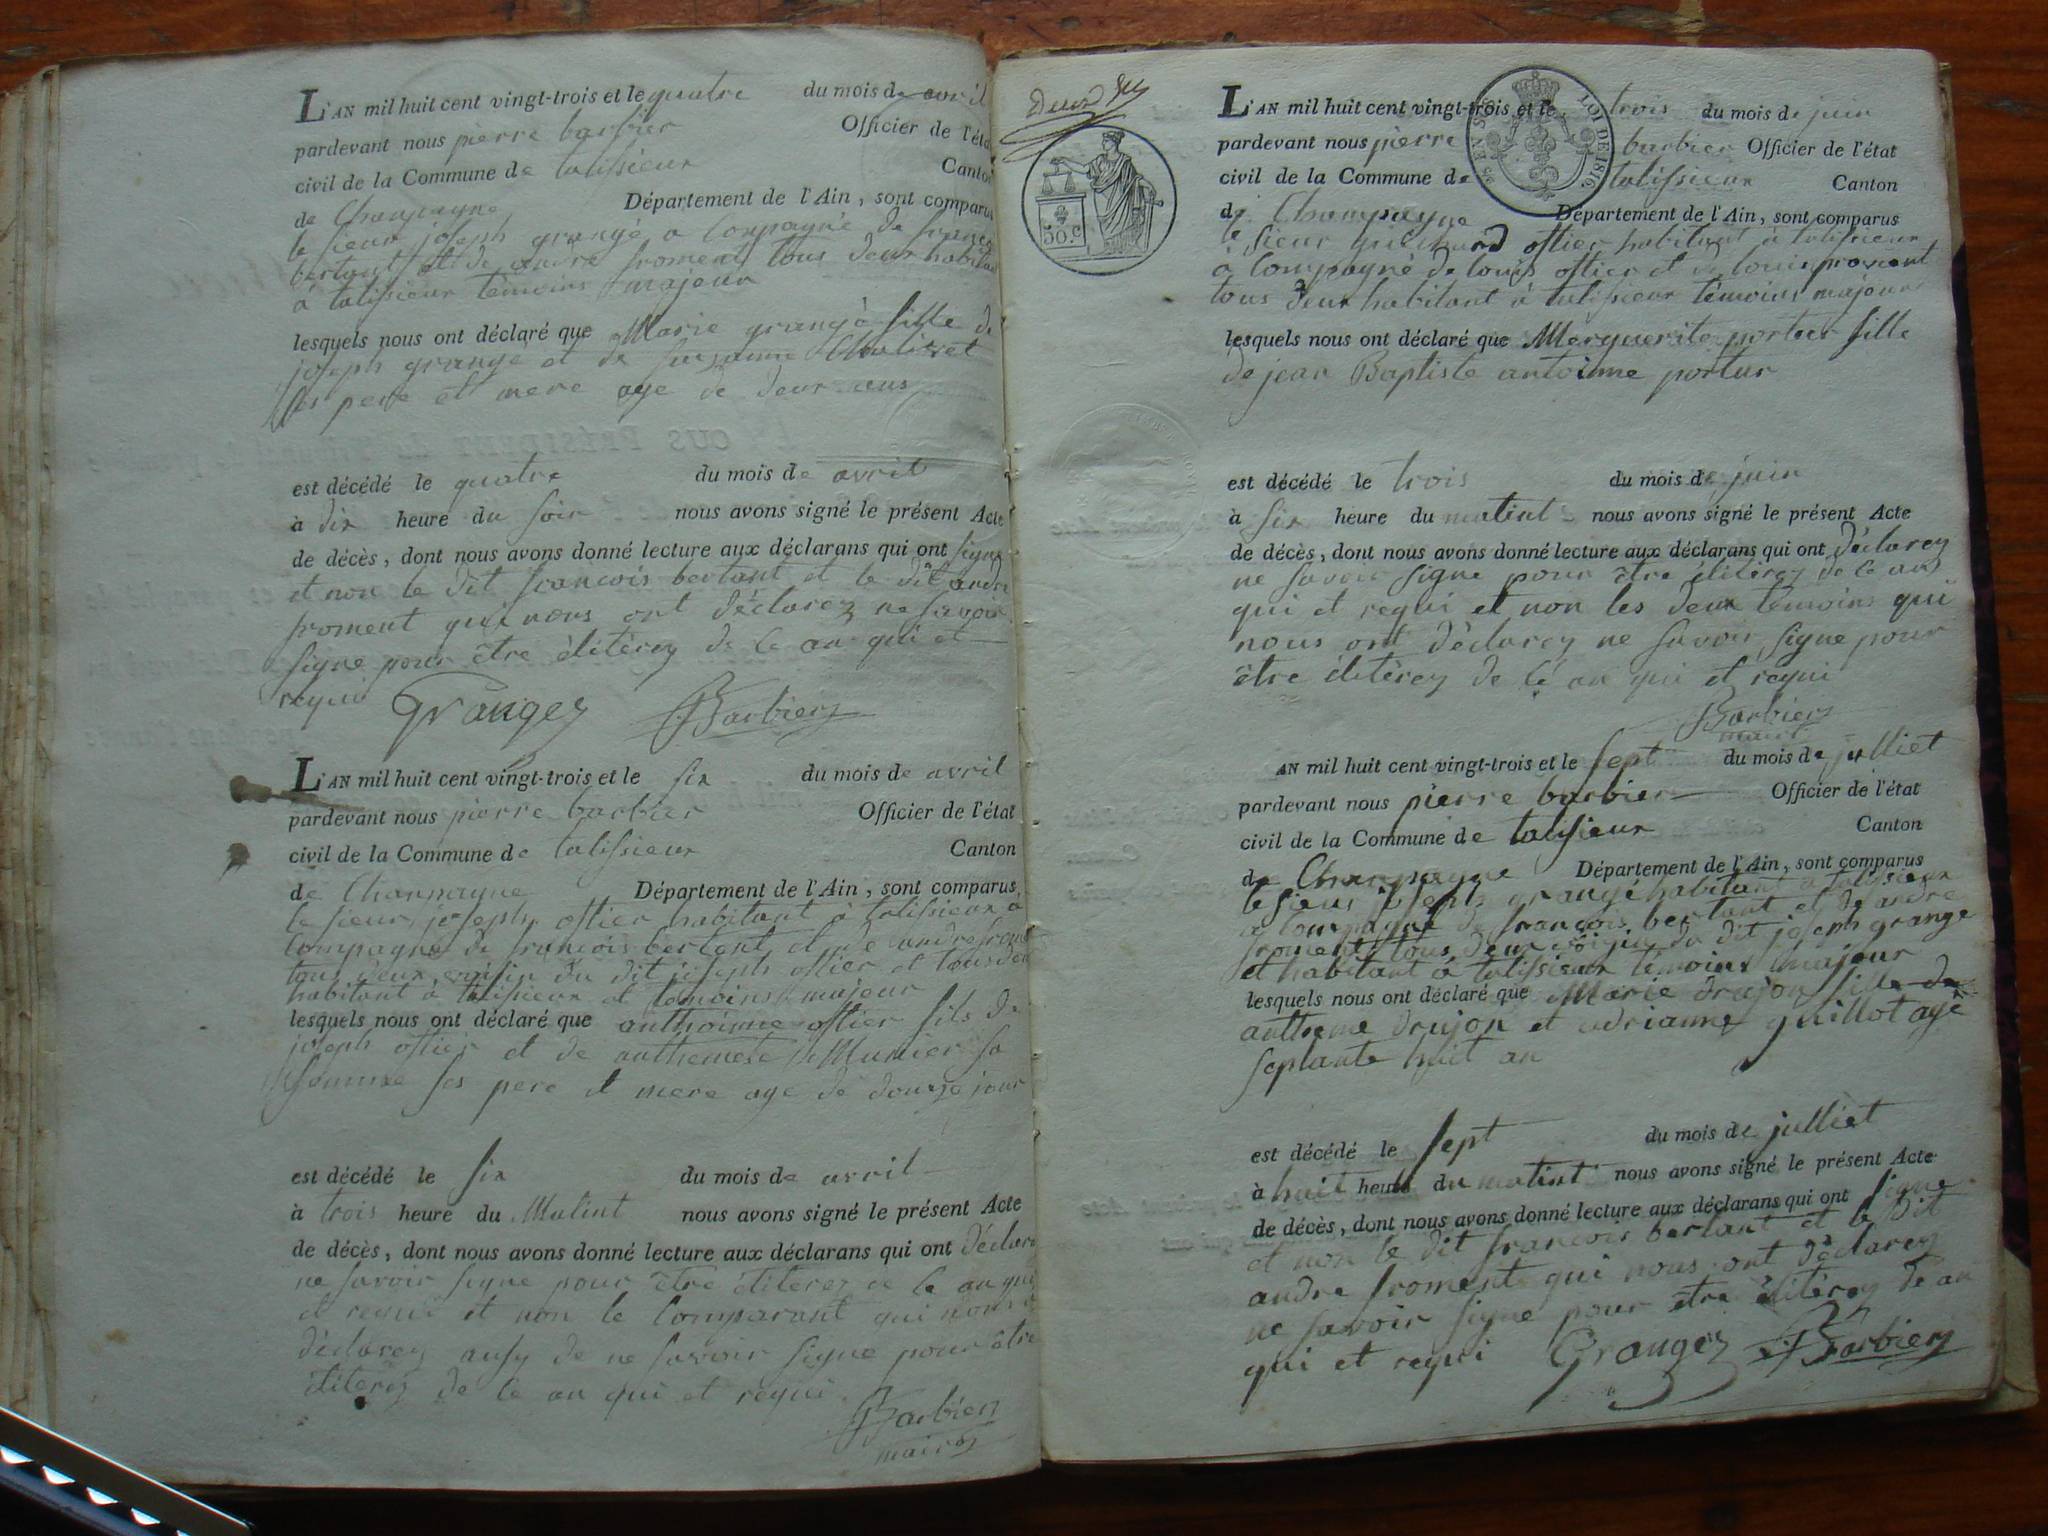 L'AN mil huit cent vingt-trois et le quatre du mois de avril
pardevant nous pierre barbier Officier de l'éta
civil de la Commune de talissieux Canton
de Champagne Département de l'Ain, sont comparus
le sieur joseph grangé a Compagné de françois
bertant et de andre froment tous deux habitant
à talissieux temoins majeur
lesquels nous ont déclaré que Marie grangé fille de
joseph grange et de Susanne
ses pere et mere age de deux ans
est décédé le quatre du mois de avril
à dix heure du soir nous avons signé le présent Acte
de décès, dont nous avons donné lecture aux déclarans qui ont signe
et non le dit francois bertant et le dit andre
froment qui nous ont déclarez ne savoir
signe pour être élitérez de ce an qui et
requi Grangez Barbier
L'AN mil huit cent vingt-trois et le six du mois de avril
pardevant nous pierre barbier Officier de l'état
civil de la Commune de talissieux Canton
de Champagne Département de l'Ain, sont comparus
le sieur joseph ostier habitant à talissieux a
Compagne de francois bertent et de andre frome
tous deux voisin du dit joseph ostier et tous deu
habitant à talissieux et temoins majeur
lesquels nous ont déclaré que anthoinne ostier fils de
joseph ostier et de anthemete Munier sa
femme ses pere et mere age de douze jour
est décédé le six du mois de avril
à trois heure du Matint nous avons signé le présent Acte
de décès, dont nous avons donné lecture aux déclarans qui ont déclare
ne savoir signe pour être éliterez de ce an qui
et requi et non le Comparant qui nous a
déclarez ausy de ne savoir signe pour être
éliterez de ce an qui et requi
Barbier
maire
deux
50.C
EN SUS
LOI DE 1816
L'AN mil huit cent vingt-trois et le trois du mois de juin
pardevant nous pierre barbier Officier de l'état
civil de la Commune de talissieux Canton
de Champagne Département de l'Ain, sont comparus
le sieur ostier habitant à talissieux
a Compagné de louis ostier et de louis froment
tous deux habitant à talissieux témoins majeur
lesquels nous ont déclaré que Merguerite portier fille
de jean Baptiste antoinne portier
est décédé le trois du mois de juin
à six heure du matint nous avons signé le présent Acte
de décès, dont nous avons donné lecture aux déclarans qui ont déclarez
ne savoir signe pour être élitérez de ce an
qui et requi et non les deux temoins qui
nous ont déclarez ne savoir signe pour
être élitérez de ce an qui et requi
Barbier
maire
AN mil huit cent vingt-trois et le sept du mois de julliet
pardevant nous pierre barbier Officier de l'état
civil de la Commune de talissieux Canton
de Champagne Département de l'Ain, sont comparus
le sieur joseph grangé habitant à talissieux
a Compagné de francois bertant et de andre
froment tous deux voisin du dit joseph grange
et habitant à talissieux témoins majeur
lesquels nous ont déclaré que Marie drujon fille de
antheme drujon et adrianne guillot agé
septante huit an
est décédé le sept du mois de julliet
à huit heure du matint nous avons signé le présent Acte
de décès, dont nous avons donné lecture aux déclarans qui ont signe
et non le dit francois bertant et le dit
andre froment qui nous ont déclarez
ne savoir signe pour être élitérez de an
qui et requi Grangez Barbier